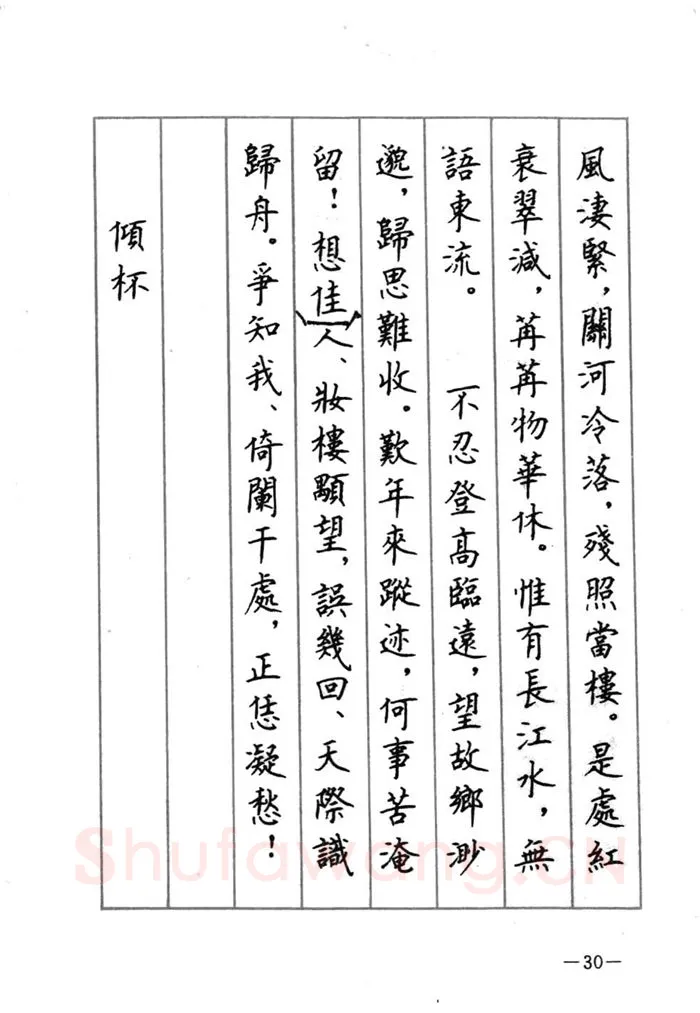 風淒緊，關河冷落，殘照當樓。是處紅
衰翠減，苒苒物華休。惟有長江水，無
語東流。　　不忍登高臨遠，望故鄉渺
邈，歸思難收。歎年來蹤迹，何事苦淹
留！想佳人、妝樓顒望，誤幾回、天際識
歸舟。爭知我、倚闌干處，正恁凝愁！
傾杯
Shufawang.CN
—30—